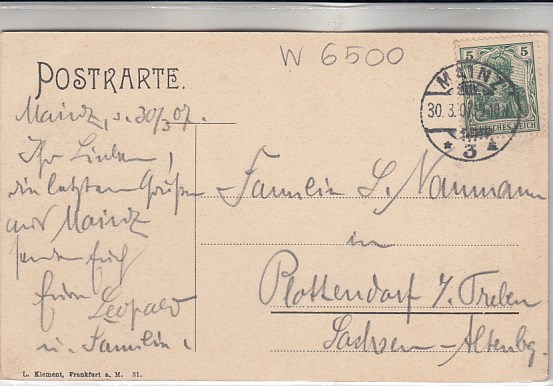 W 6500
POSTKARTE.
5 5
MAINZ
30. 3. 07
DEUTSCHES REICH
* 3
Mainz, d. 30/3 07.
Ihr Lieben,
die letzten Grüße
aus Mainz
senden Euch
Euer Leopold
u. Familie.
Familie L. Naumann
in
Plottendorf b/ Treben
Sachsen-Altenbg.
L. Klement, Frankfurt a. M. 31.